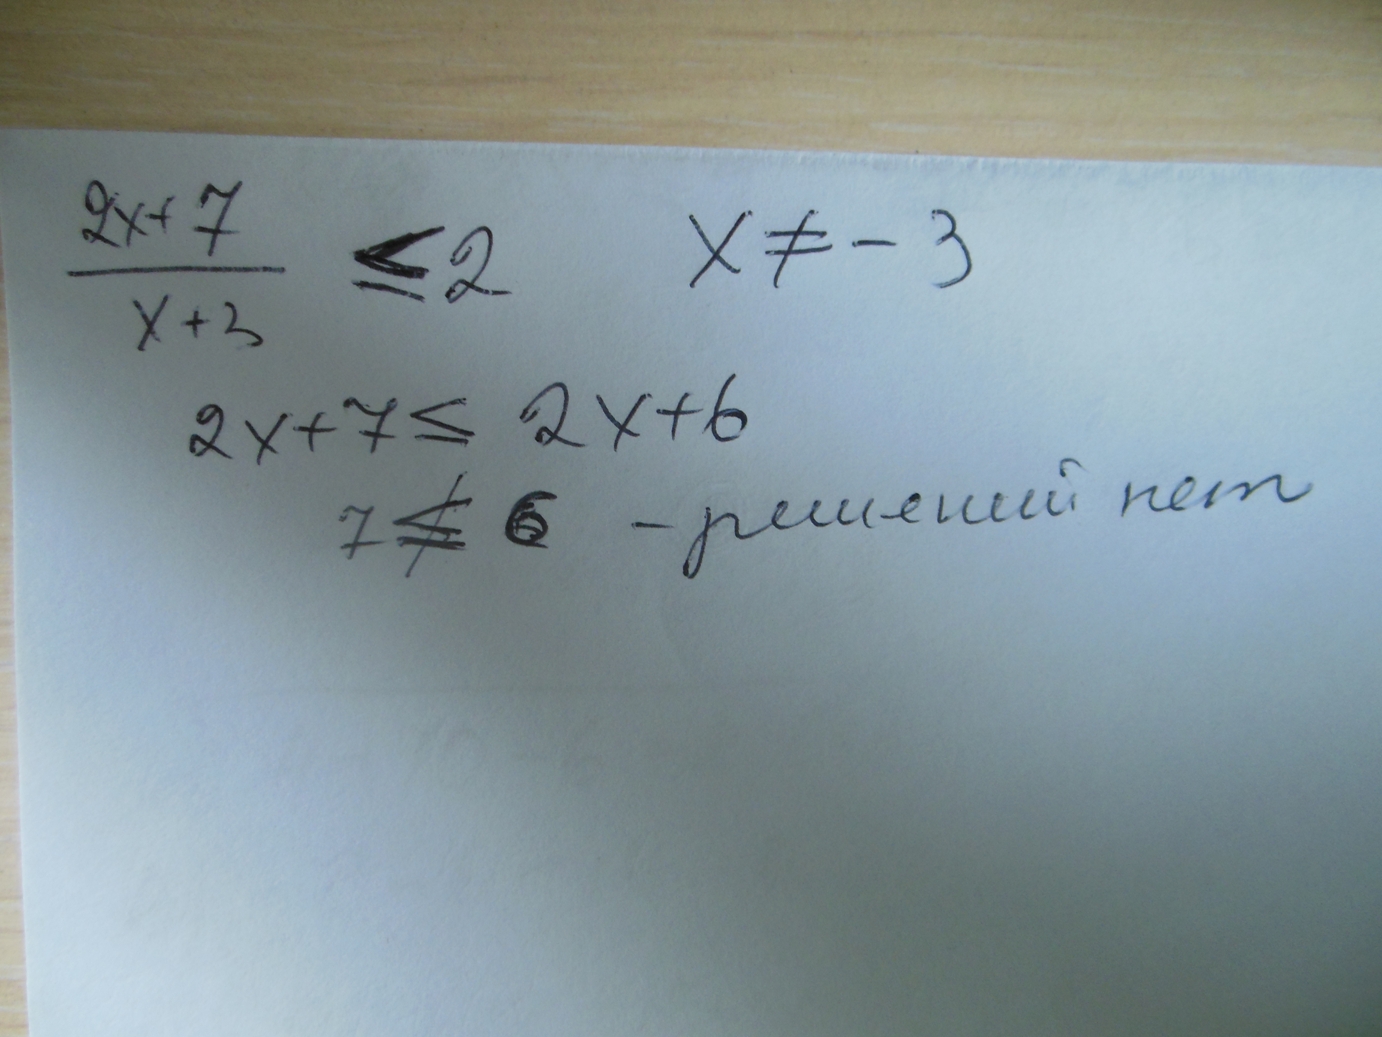 (2x+7)/(x+3) ≤ 2   x ≠ -3
2x+7 ≤ 2x+6
7 ≰ 6 - решений нет